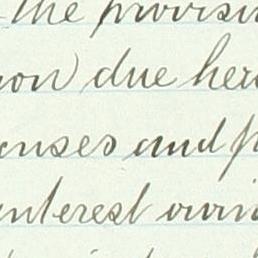 the provisi
on due her
enses and p
interest owin